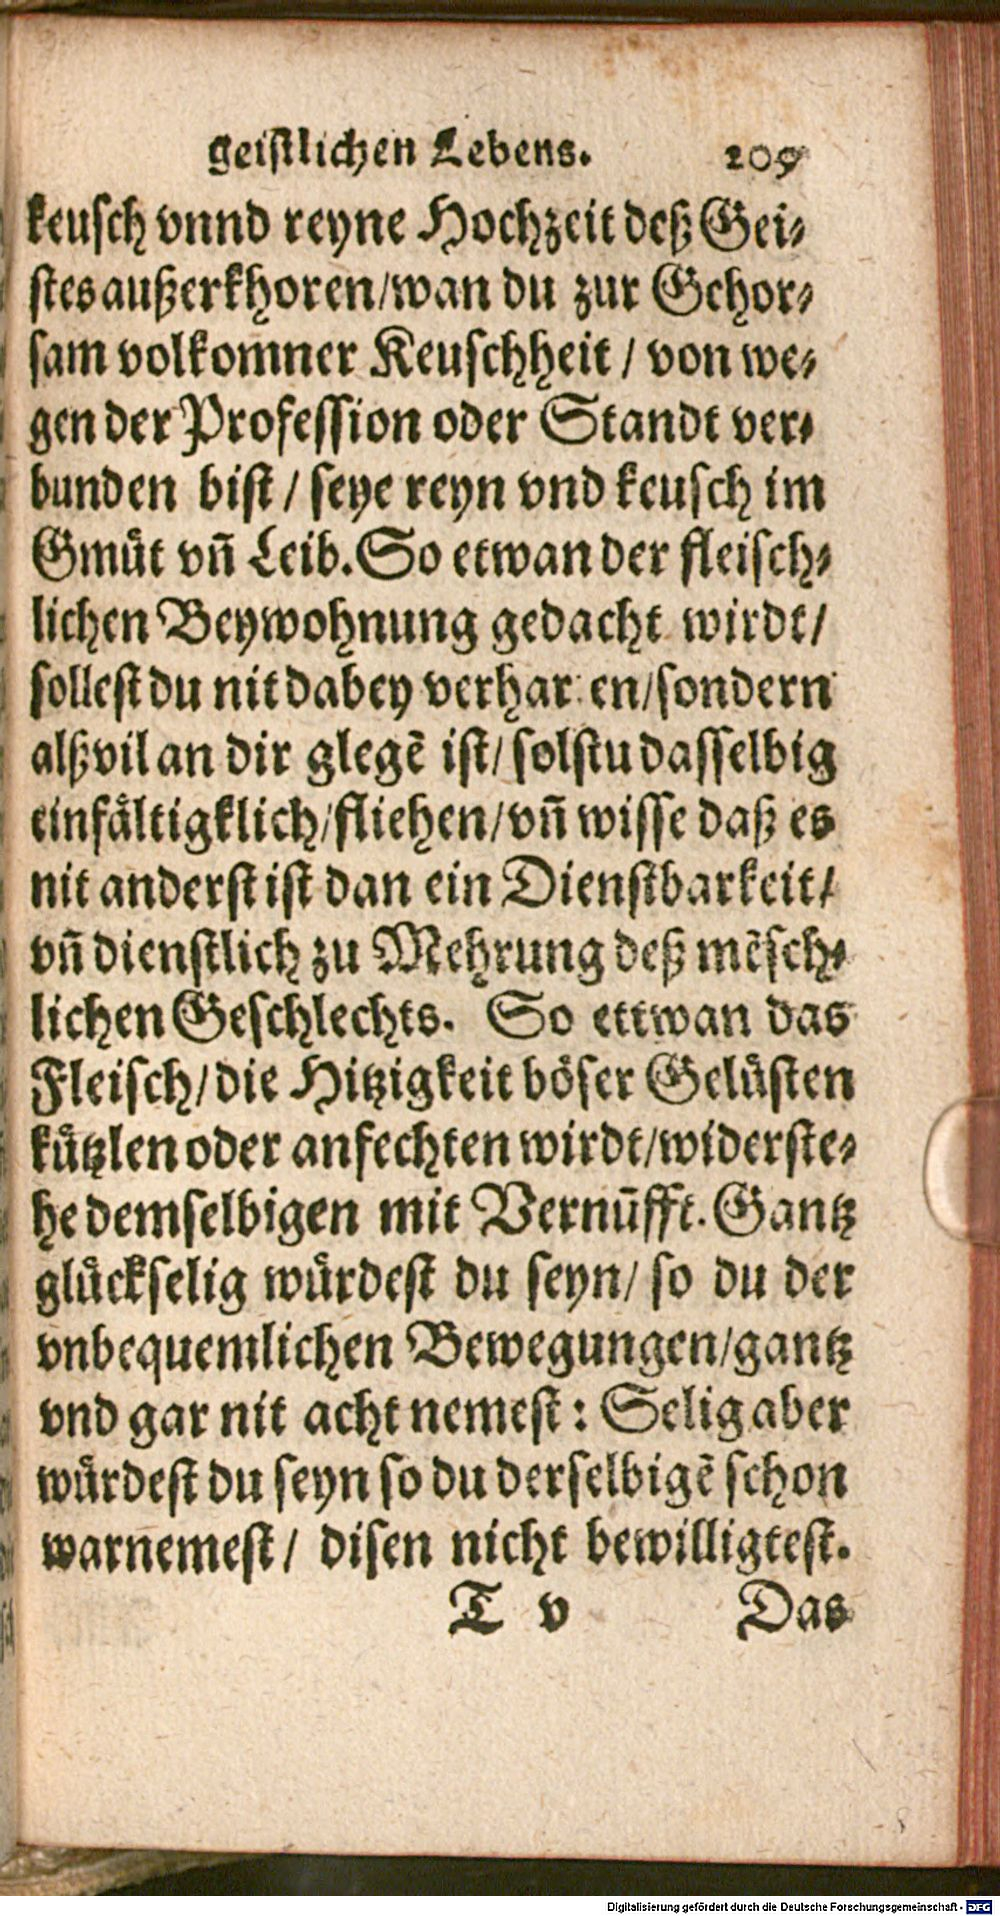 geistlichen Lebens. 209
keusch vnnd reyne Hochzeit deß Gei-
stes außerkhoren/wan du zur Gehor-
sam volkomner Keuschheit / von we-
gen der Profession oder Standt ver-
bunden bist / seye reyn vnd keusch im
Gmüt vñ Leib. So etwan der fleisch-
lichen Beywohnung gedacht wirdt/
sollest du nit dabey verhar en/sondern
alß vil an dir glegẽ ist/ solstu dasselbig
einfältigklich/fliehen/vñ wisse daß es
nit anderst ist dan ein Dienstbarkeit/
vñ dienstlich zu Mehrung deß mẽsch-
lichen Geschlechts. So ettwan das
Fleisch/die Hitzigkeit böser Gelüsten
kützlen oder anfechten wirdt/widerste-
he demselbigen mit Vernũfft. Gantz
glückselig würdest du seyn/ so du der
vnbequemlichen Bewegungen/gantz
vnd gar nit acht nemest: Selig aber
würdest du seyn so du derselbigẽ schon
warnemest/ disen nicht bewilligtest.
T v Das
Digitalisierung gefördert durch die Deutsche Forschungsgemeinschaft - DFG